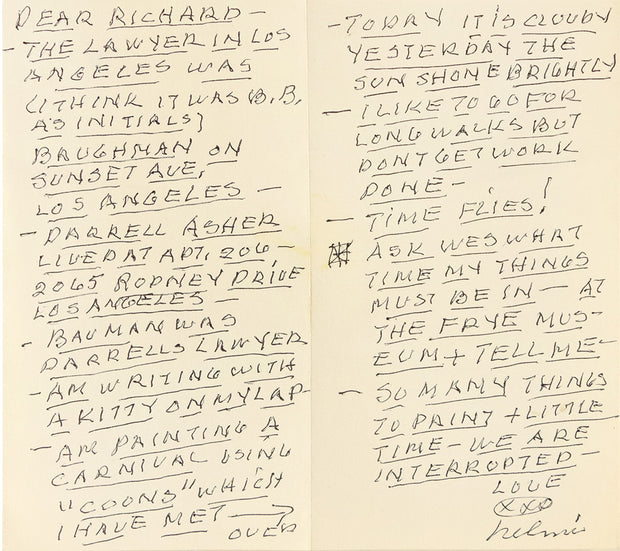 DEAR RICHARD-
-THE LAWYER IN LOS
ANGELES WAS
(I THINK IT WAS B.B.
AS INITIALS)
BAUGHMAN ON
SUNSET AVE,
LOS ANGELES -
- DARRELL ASHER
LIVED AT APT. 206-
2065 RODNEY DRIVE
LOS ANGELES -
- BAUMAN WAS
DARRELLS LAWYER
-AM WRITING WITH
A KITTY ON MY LAP-
- AM PAINTING A
CARNIVAL USING
"COONS" WHICH
I HAVE MET →
OVER
-TODAY IT IS CLOUDY
YESTERDAY THE
SUN SHONE BRIGHTLY
- I LIKE TO GO FOR
LONG WALKS BUT
DONT GET WORK
DONE-
- TIME FLIES!
ASK WES WHAT
TIME MY THINGS
MUST BE IN - AT
THE FRYE MUS-
EUM + TELL ME-
- SO MANY THINGS
TO PAINT + LITTLE
TIME - WE ARE
INTERRUPTED-
LOVE
XXO
helmi